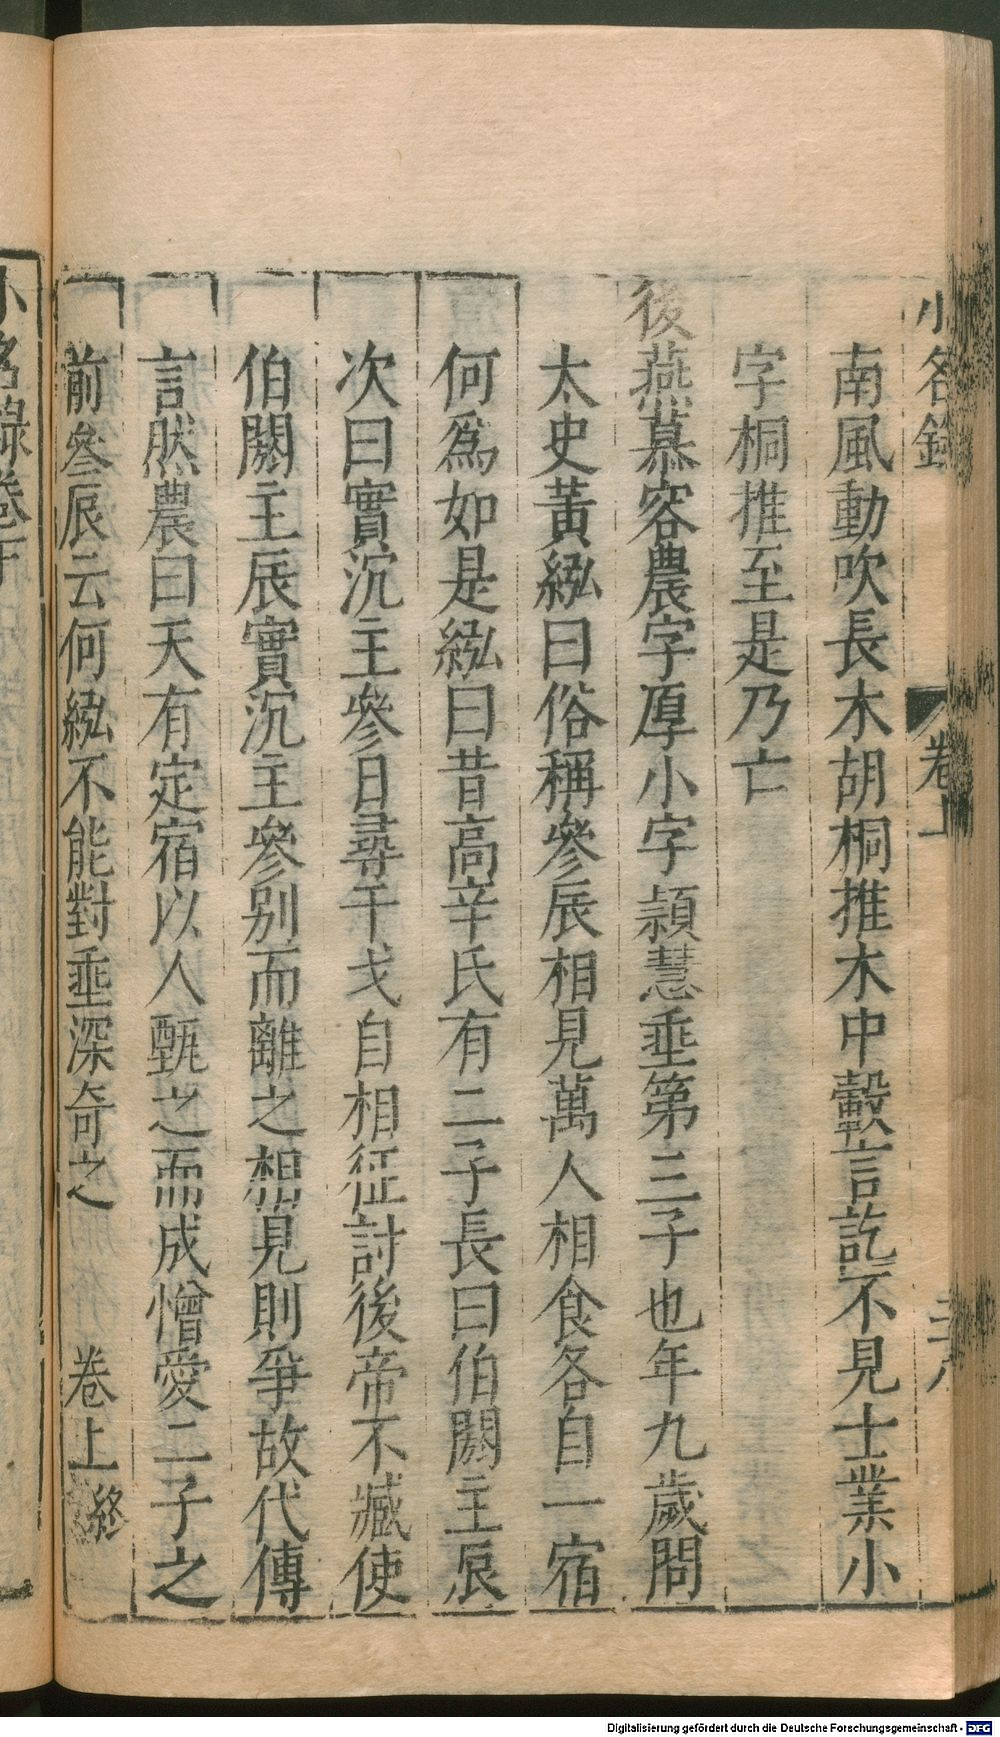 小名錄 卷上 三八
南風動吹長木胡桐推木中轂言訖不見士業小
字桐推至是乃亡
後燕慕容農字厚小字頴慧垂第三子也年九歲問
太史黃紭曰俗稱參辰相見萬人相食各自一宿
何爲如是紭曰昔高辛氏有二子長曰伯閼主辰
次曰實沉主參日尋干戈自相征討後帝不臧使
伯閼主辰實沉主參別而離之相見則爭故代傳
言然農曰天有定宿以人甄之而成憎愛二子之
前參辰云何紭不能對垂深奇之 卷上終
小名錄卷下
Digitalisierung gefördert durch die Deutsche Forschungsgemeinschaft - DFG